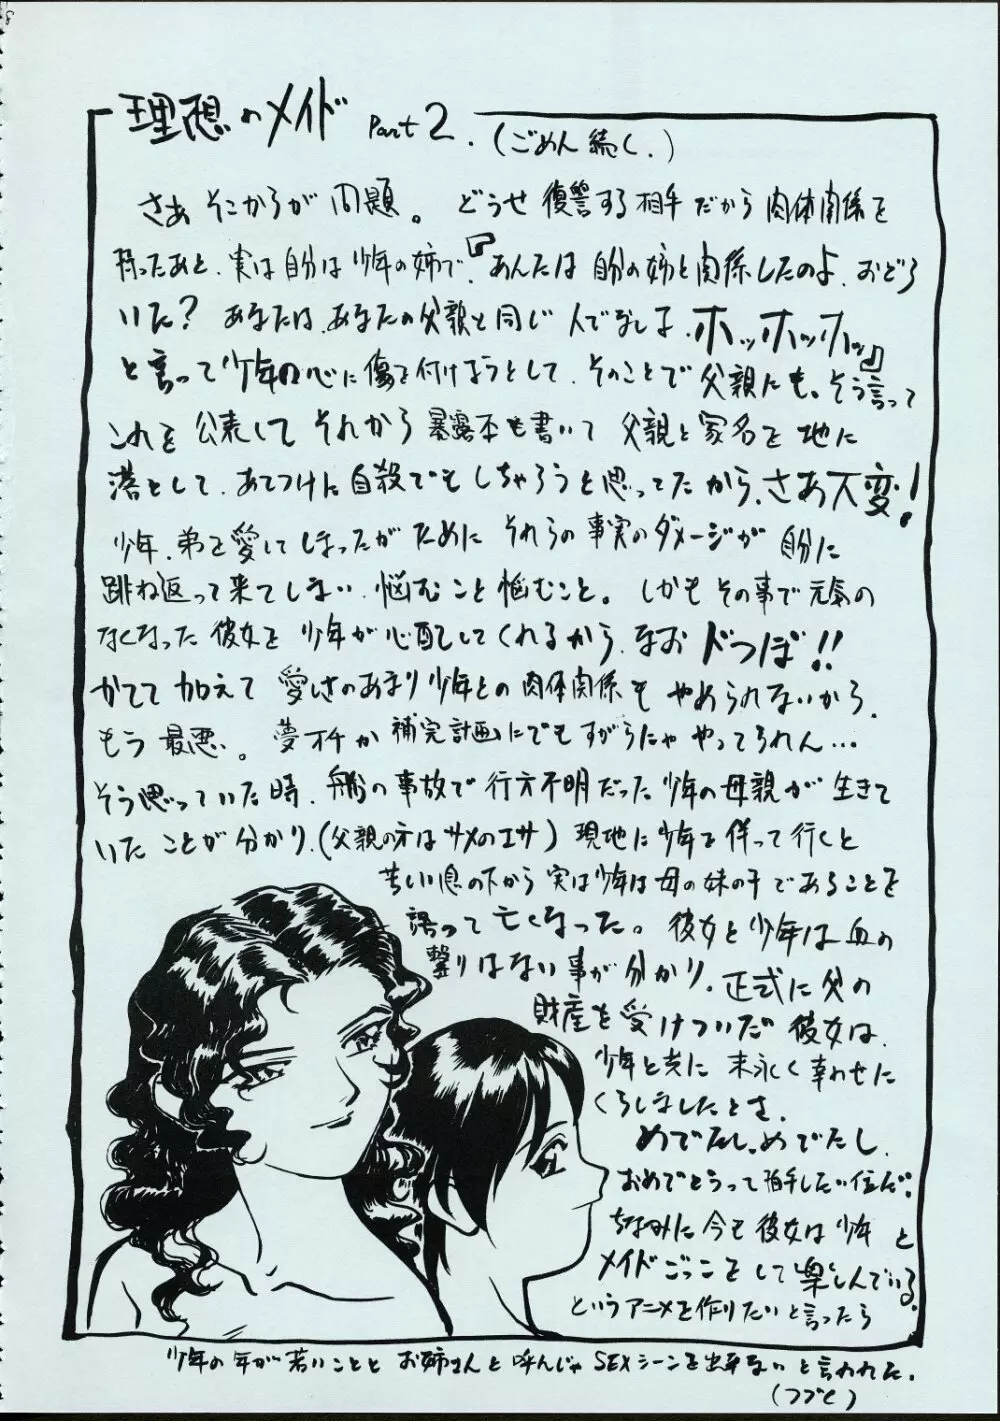 理想のメイド Part 2.(ごめん続く.)
さあ そこからが 問題。 どうせ 復讐する相手だから 肉体関係を
持ったあと、実は自分は少年の姉で、『あんたは 自分の姉と関係したのよ、おどろ
いた? あなたは、あなたの父親と同じ 人でなしよ、ホッホッホッ』
と言って少年の心に傷を付けようとして、そのことで父親にも。そう言って
これを 公表して それから 暴露本も書いて 父親と家名を 地に
落として、あてつけに自殺でもしちゃろうと思ってたから、さあ大変!
少年、弟を愛してしまったがために それらの事実のダメージが 自分に
跳ね返って来てしまい、悩むこと悩むこと。しかも その事で元気の
なくなった彼女を 少年が心配してくれるから、なお ドつぼ!!
かてて加えて 愛しさのあまり少年との肉体関係も やめられないから、
もう 最悪。 夢オチか 補完計画にでもすがらにゃ やってられん…
そう思っていた時、船の事故で行方不明だった少年の母親が生きて
いたことが分かり、(父親の方はサメのエサ) 現地に少年を伴って行くと
苦しい息の下から 実は少年は母の妹の子であることを
語って 亡くなった。 彼女と少年は血の
繋りはない事が分かり、正式に父の
財産を受けついだ 彼女は、
少年と共に 末永く幸わせに
くらしましたとさ.
めでたし、めでたし.
おめでとうって拍手したい位だ.
ちなみに今も 彼女は少年と
メイドごっこをして楽しんでいる.
というアニメを作りたいと言ったら
少年の年が若いことと お姉さんと呼んじゃ SEXシーンを出来ないと言われた.
(つづく)